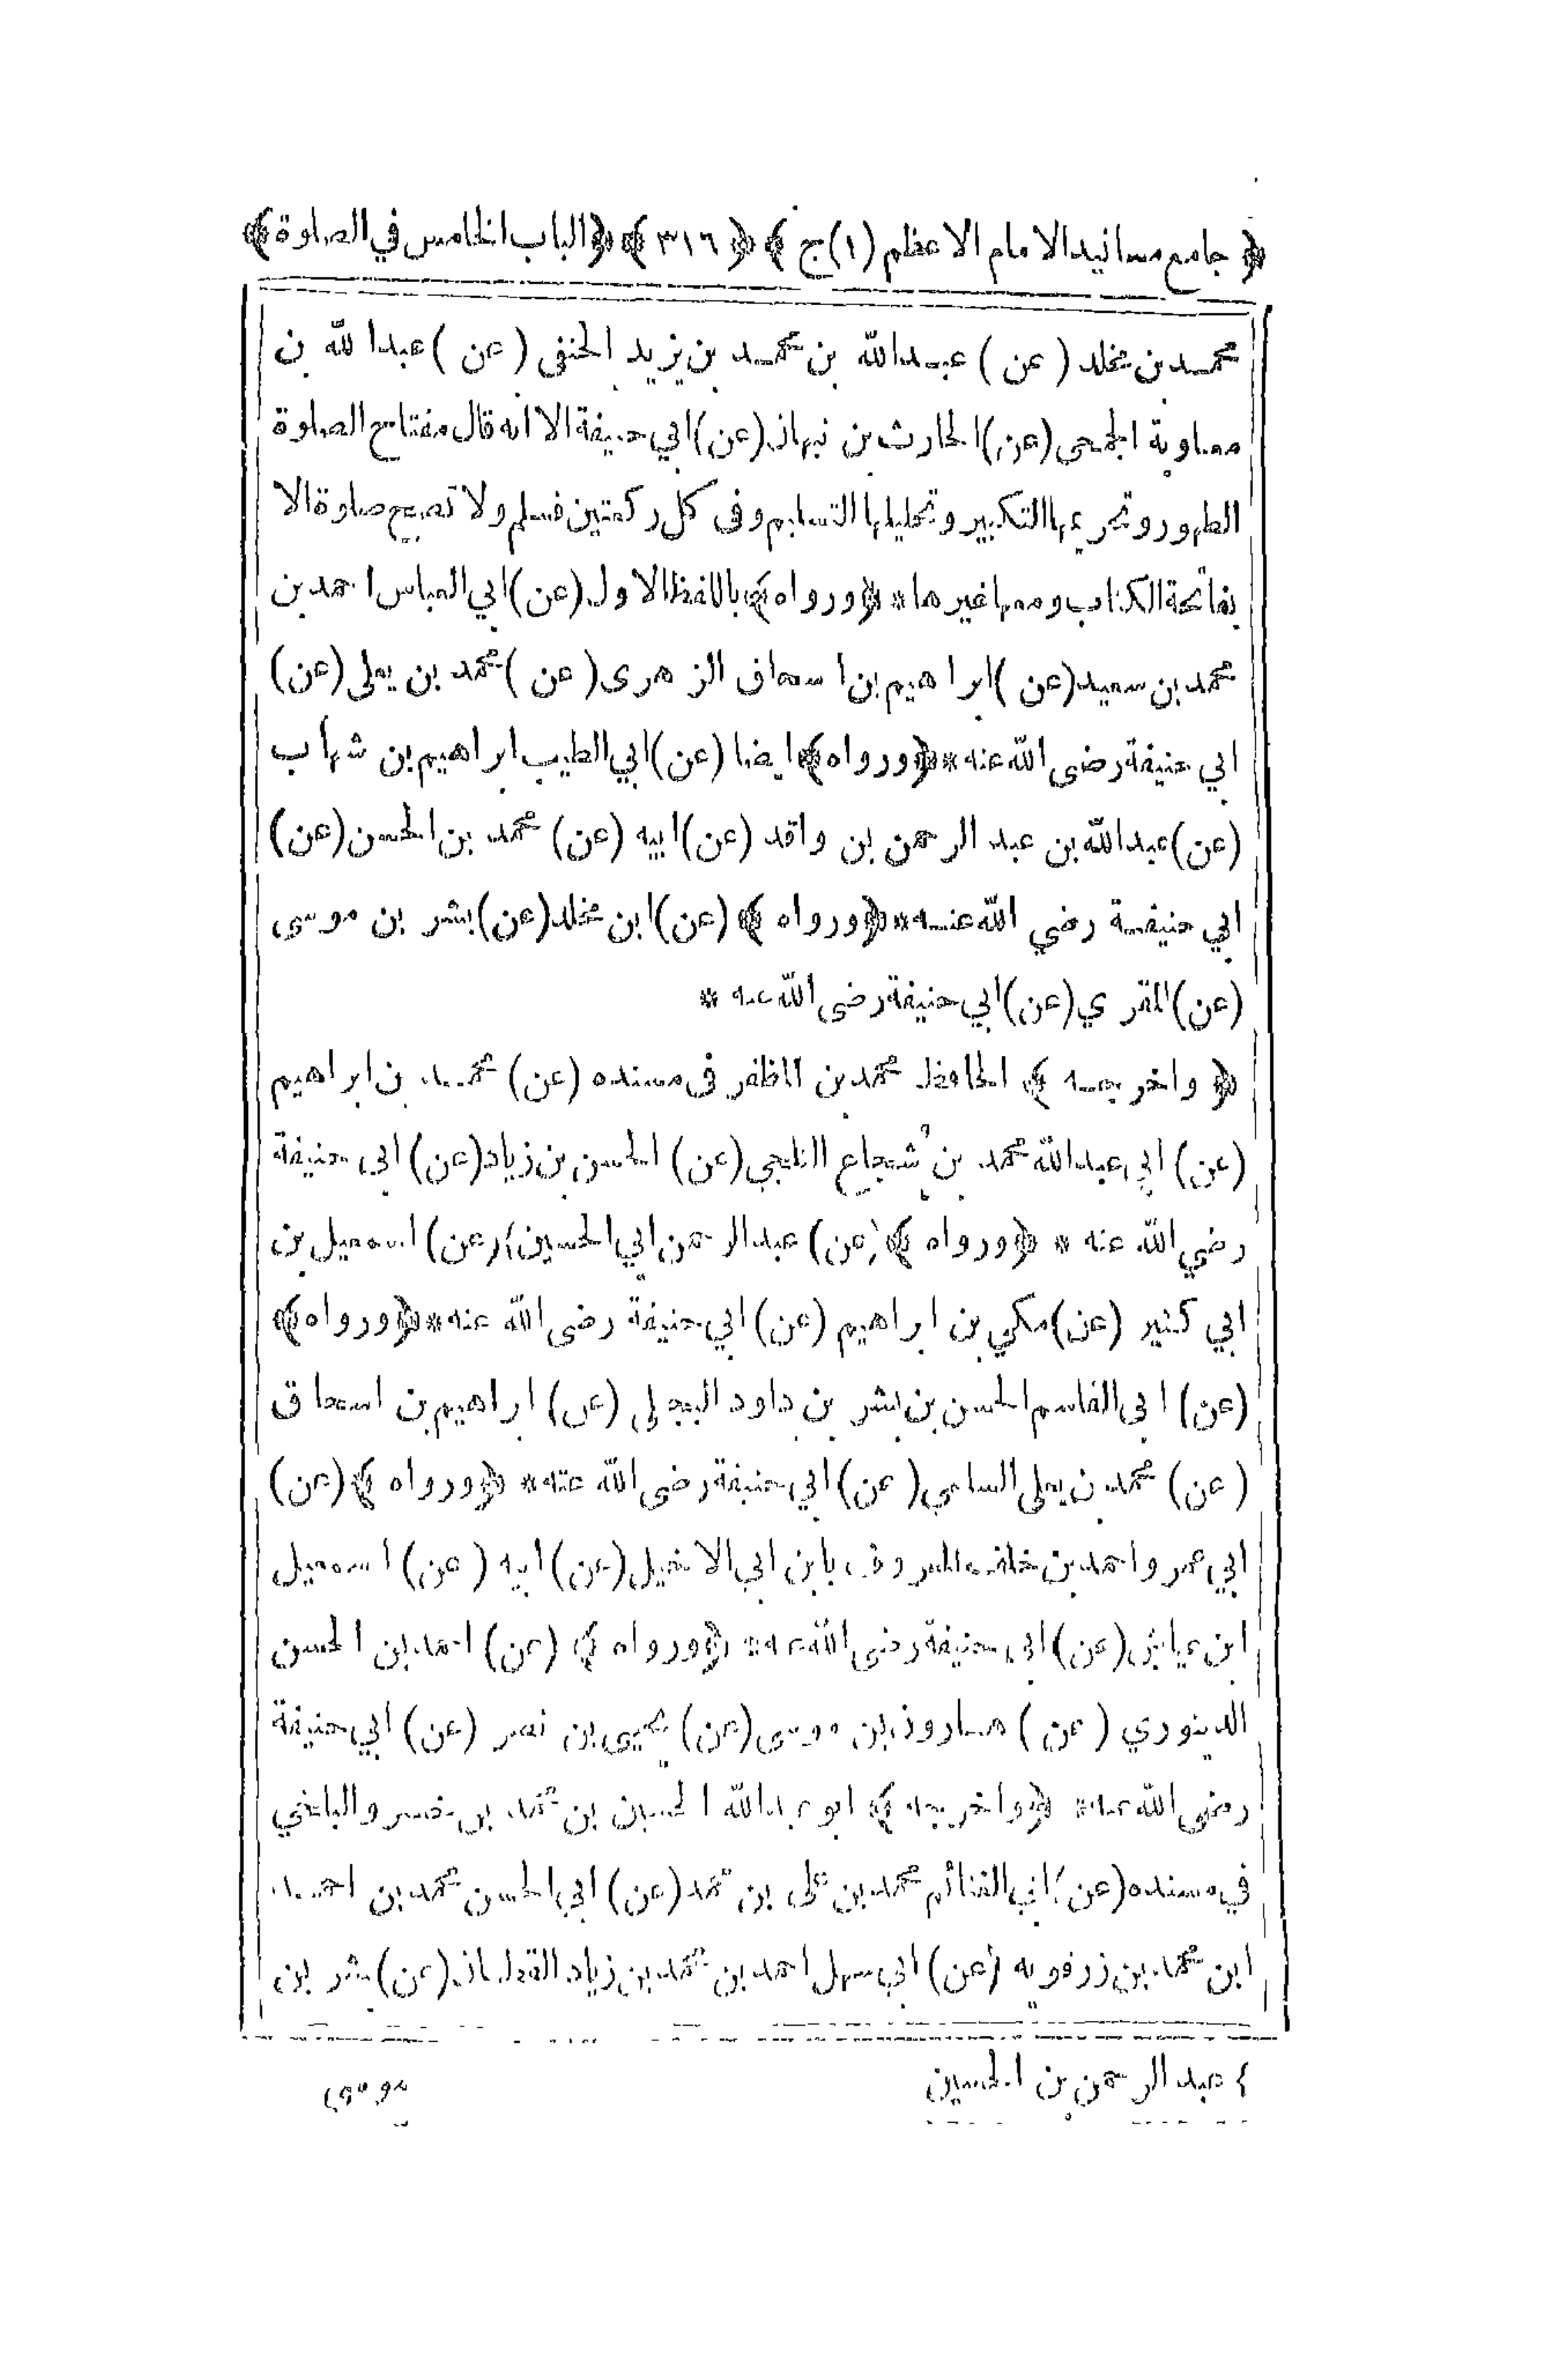 ﴿ جامع مسانيد الامام الاعظم (١) ج ﴾ ﴿ ٣١٦ ﴾ ﴿ الباب الخامس في الصلوة ﴾
محمد بن مخلد ( عن ) عبدالله بن محمد بن يزيد الحنفى ( عن ) عبدالله بن
معاوية الجمحى (عن) الحارث بن نبهان (عن) ابي حنيفة الا انه قال مفتاح الصلوة
الطهور وتحريمها التكبير وتحليلها التسليم وفى كل ركعتين فسلم ولا تصح صلوة الا
بفاتحة الكتاب ومعها غيرها * ﴿ ورواه ﴾ باللفظ الاول (عن) ابي العباس احمد بن
محمد بن سعيد (عن ) ابراهيم بن اسحاق الزهرى ( عن ) محمد بن يعلى (عن)
ابي حنيفة رضى الله عنه * ﴿ ورواه ﴾ ايضا (عن) ابي الطيب ابراهيم بن شهاب
(عن) عبدالله بن عبد الرحمن بن واقد (عن) ابيه (عن) محمد بن الحسن (عن)
ابي حنيفة رضي الله عنه * ﴿ ورواه ﴾ (عن) ابن مخلد (عن) بشر بن موسى
(عن) المقري (عن) ابي حنيفة رضى الله عنه *
﴿ واخرجه ﴾ الحافظ محمد بن المظفر فى مسنده (عن) محمد بن ابراهيم
(عن) ابي عبدالله محمد بن شجاع الثلجي (عن) الحسن بن زياد (عن) ابى حنيفة
رضي الله عنه * ﴿ ورواه ﴾ (عن) عبدالرحمن ابي الحسين ٤ (عن) اسمعيل بن
ابي كثير (عن) مكي بن ابراهيم (عن) ابي حنيفة رضى الله عنه * ﴿ ورواه ﴾
(عن) ابى القاسم الحسن بن بشر بن داود البجلى (عن) ابراهيم بن اسحاق
(عن) محمد بن يعلى السلمي (عن) ابي حنيفة رضى الله عنه * ﴿ ورواه ﴾ (عن)
ابي عمرو احمد بن خلف المعروف بابن ابي الاخيل (عن) ابيه ( عن) اسمعيل
ابن عياش (عن) ابى حنيفة رضى الله عنه * ﴿ ورواه ﴾ (عن) احمد بن الحسن
الدينوري ( عن ) هارون بن موسى (عن) يحيى بن نصر (عن) ابي حنيفة
رضى الله عنه * ﴿ واخرجه ﴾ ابو عبدالله الحسين بن محمد بن خسرو البلخي
في مسنده (عن) ابي الغنائم محمد بن على بن محمد (عن) ابي الحسن محمد بن احمد
ابن محمد بن زرقويه (عن) ابي سهل احمد بن محمد بن زياد القطان (عن) بشر بن
٤ عبد الرحمن بن الحسين
موسى